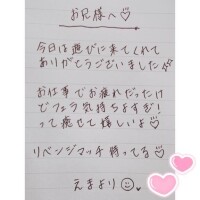 お兄様へ♡
今日は遊びに来てくれて
ありがとうございました
お仕事でお疲れだったけ
でフェラ気持ちよすぎ!
って癒せて嬉しいよ♡
リベンジマッチ待ってる♡
えまより